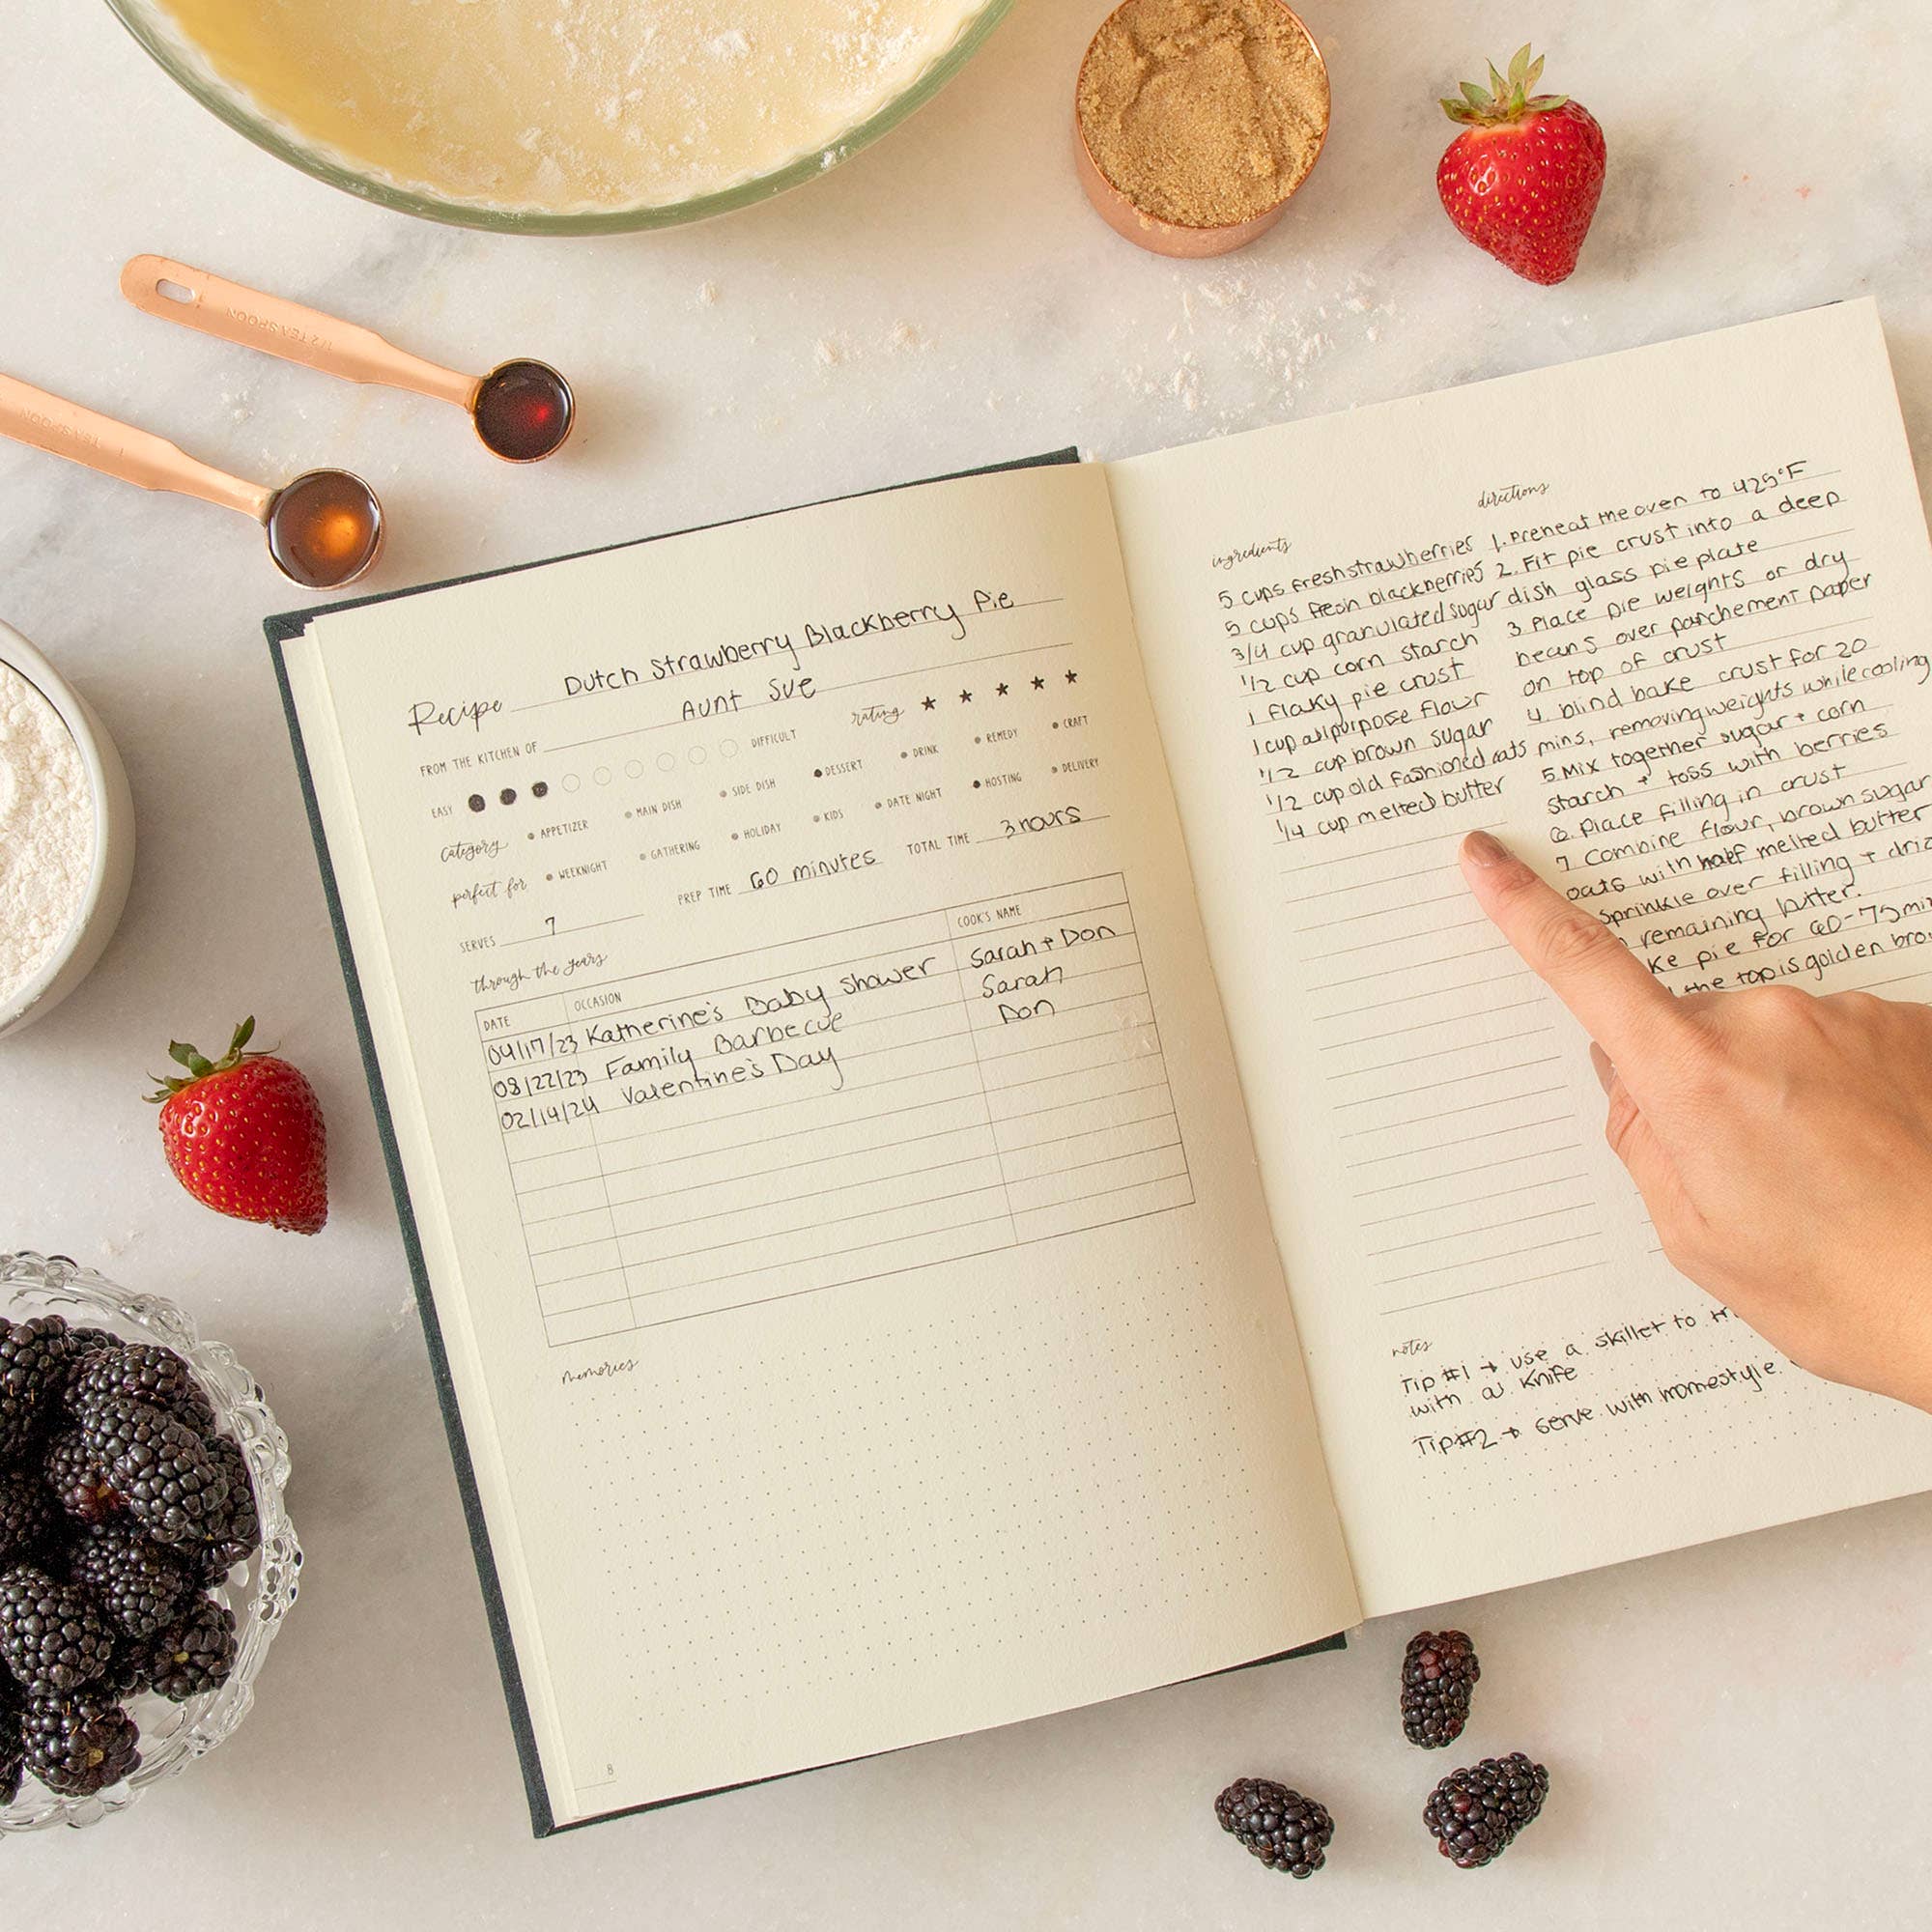 1/2 TEASPOON
TEASPOON
Recipe Dutch Strawberry Blackberry Pie
FROM THE KITCHEN OF Aunt Sue
rating ★ ★ ★ ★ ★
EASY DIFFICULT
category APPETIZER MAIN DISH SIDE DISH DESSERT DRINK REMEDY CRAFT
perfect for WEEKNIGHT GATHERING HOLIDAY KIDS DATE NIGHT HOSTING DELIVERY
SERVES 7 PREP TIME 60 minutes TOTAL TIME 3 hours
through the years
DATE OCCASION COOK'S NAME
04/17/23 Katherine's Baby shower Sarah + Don
08/22/23 Family Barbecue Sarah
02/14/24 Valentine's Day Don
memories
8
ingredients
5 cups fresh strawberries
5 cups fresh blackberries
3/4 cup granulated sugar
1/2 cup corn starch
1 flaky pie crust
1 cup allpurpose flour
1/2 cup brown sugar
1/2 cup old fashioned oats
1/4 cup melted butter
directions
1. Preheat the oven to 425°F
2. Fit pie crust into a deep
dish glass pie plate
3 Place pie weights or dry
beans over parchement paper
on top of crust
4. blind bake crust for 20
mins, removing weights while cooling
5. Mix together sugar + corn
starch + toss with berries
6. Place filling in crust
7 Combine flour, brown sugar
oats with half melted butter
Sprinkle over filling + driz
remaining butter.
ke pie for 60-75 min
the top is golden bro
notes
Tip #1 → use a skillet to
with a knife
Tip #2 → Serve with homestyle